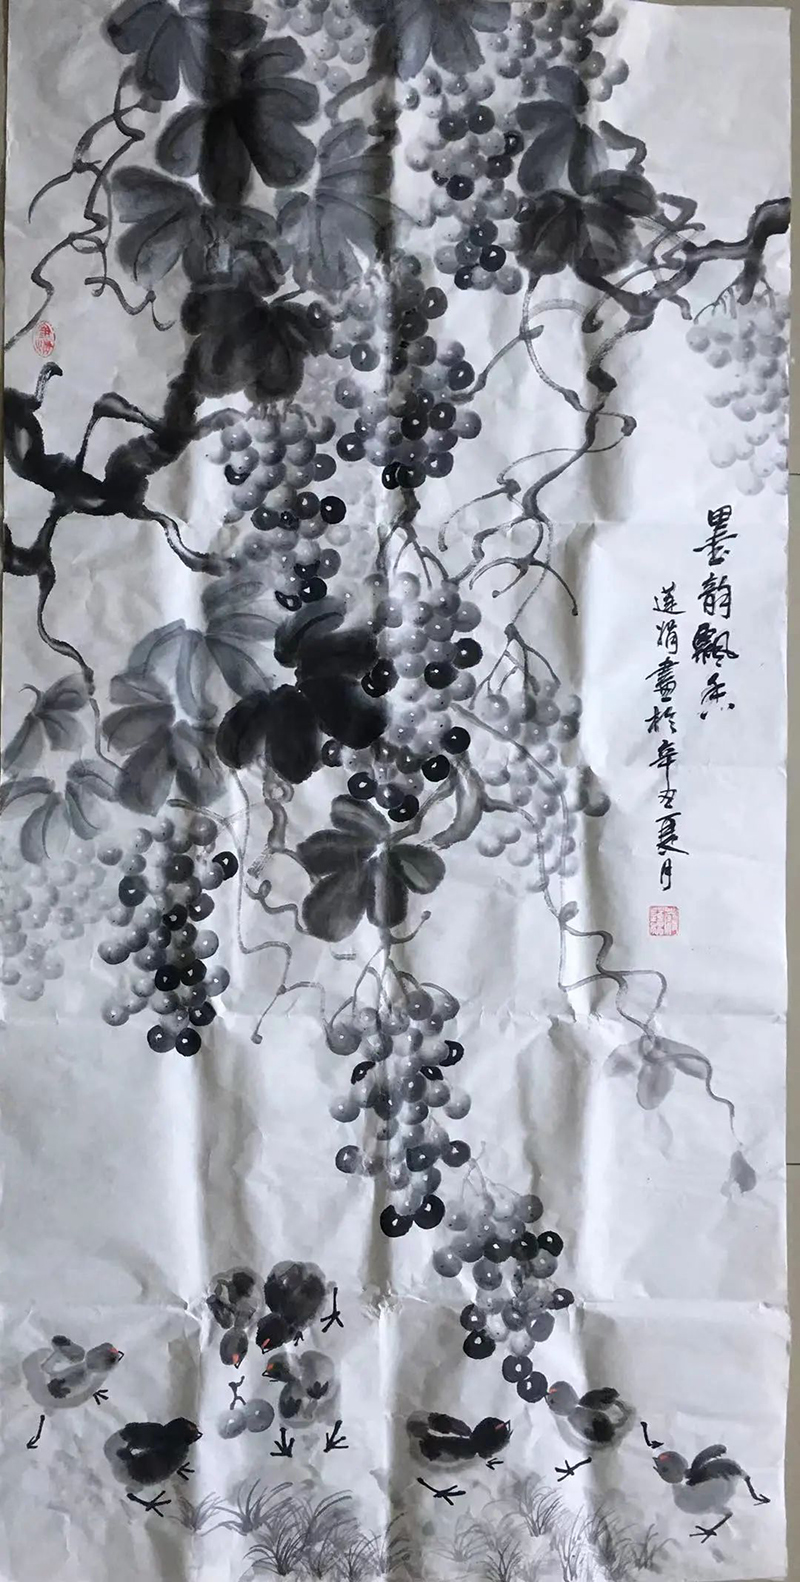 墨韵飘香
莲娟畫於辛丑夏月